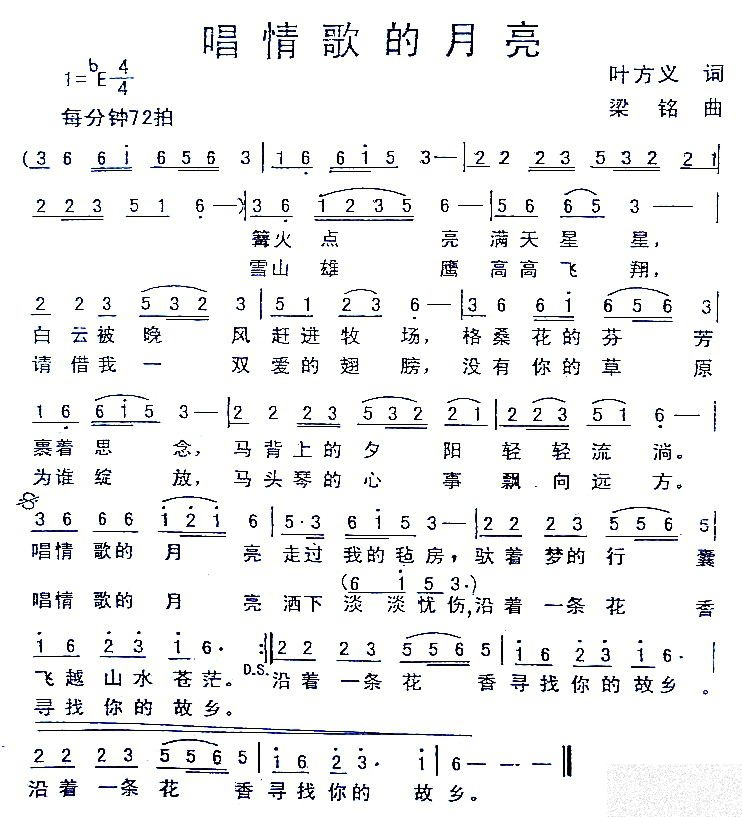 唱情歌的月亮
1=ᵇE 4/4
叶方义 词
每分钟72拍
梁铭 曲
(3 6 6 i 6 5 6 3 | 1 6 6 i 5 3 — | 2 2 2 3 5 3 2 2 1
2 2 3 5 1 6 —) | 3 6 1 2 3 5 6 — | 5 6 6 5 3 — |
篝火点 亮满天星 星,
雪山雄 鹰高高飞 翔,
2 2 3 5 3 2 3 | 5 1 2 3 6 — | 3 6 6 i 6 5 6 3 |
白云被晚 风赶进牧 场,格桑花的芬 芳
请借我一 双爱的翅 膀,没有你的草 原
1 6 6 i 5 3 — | 2 2 2 3 5 3 2 2 1 | 2 2 3 5 1 6 — |
裹着思 念,马背上的夕 阳轻轻流 淌。
为谁绽 放,马头琴的心 事飘向远 方。
3 6 6 6 i 2 i 6 | 5·3 6 i 5 3 — | 2 2 2 3 5 5 6 5 |
唱情歌的月 亮走过我的毡房,驮着梦的行 囊
(6 i 5 3·)
唱情歌的月 亮洒下淡淡忧伤,沿着一条花 香
i 6 2 3 i 6· :| 2 2 2 3 5 5 6 5 | i 6 2 3 i 6· |
飞越山水苍茫。D.S.沿着一条花 香寻找你的故乡。
寻找你的故乡。
2 2 2 3 5 5 6 5 | i 6 2 3· i | 6 — — ‖
沿着一条花 香寻找你的 故乡。